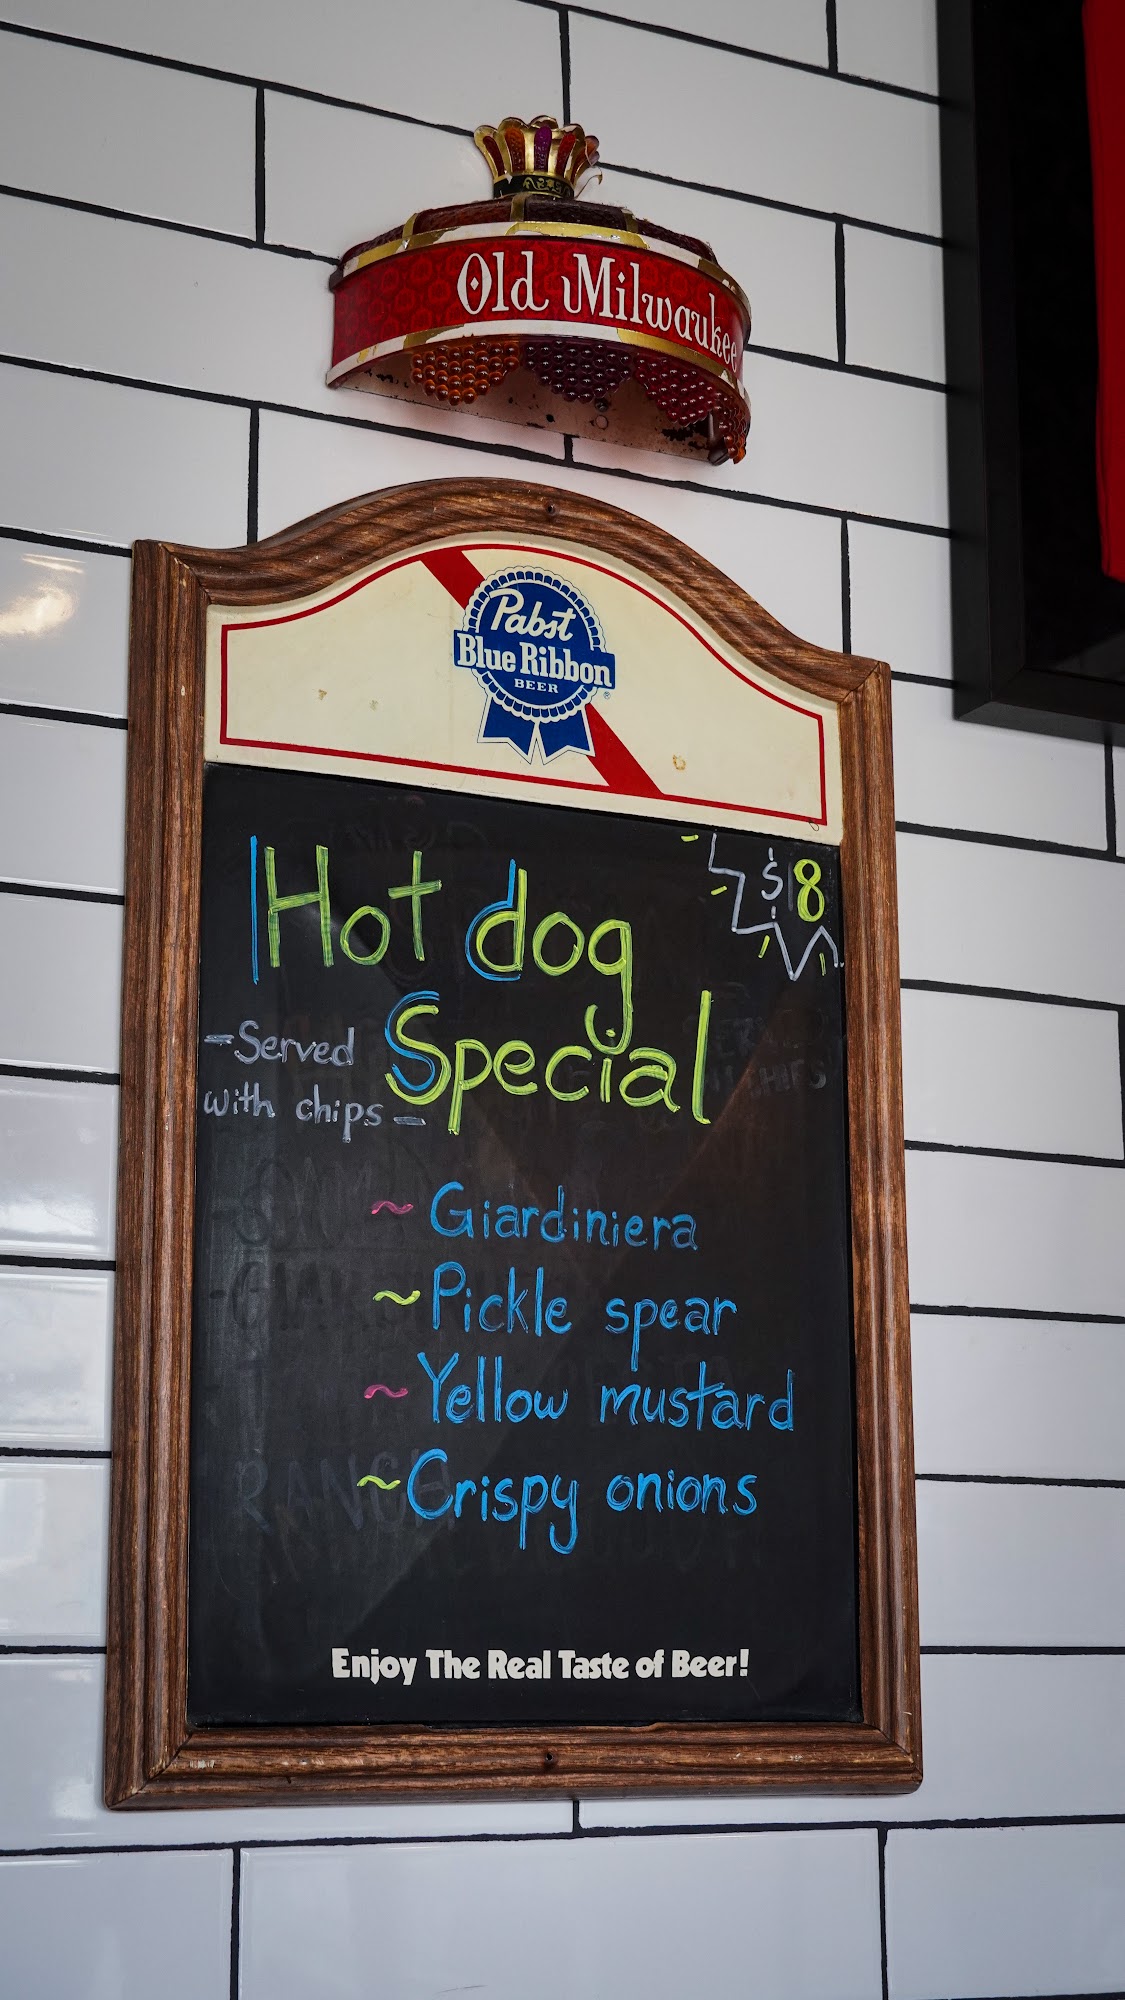 Old Milwaukee
Pabst
Blue Ribbon
BEER
®
$8
Hot dog
Special
-Served
with chips-
~ Giardiniera
~ Pickle spear
~ Yellow mustard
~ Crispy onions
RANCH
Enjoy The Real Taste of Beer!